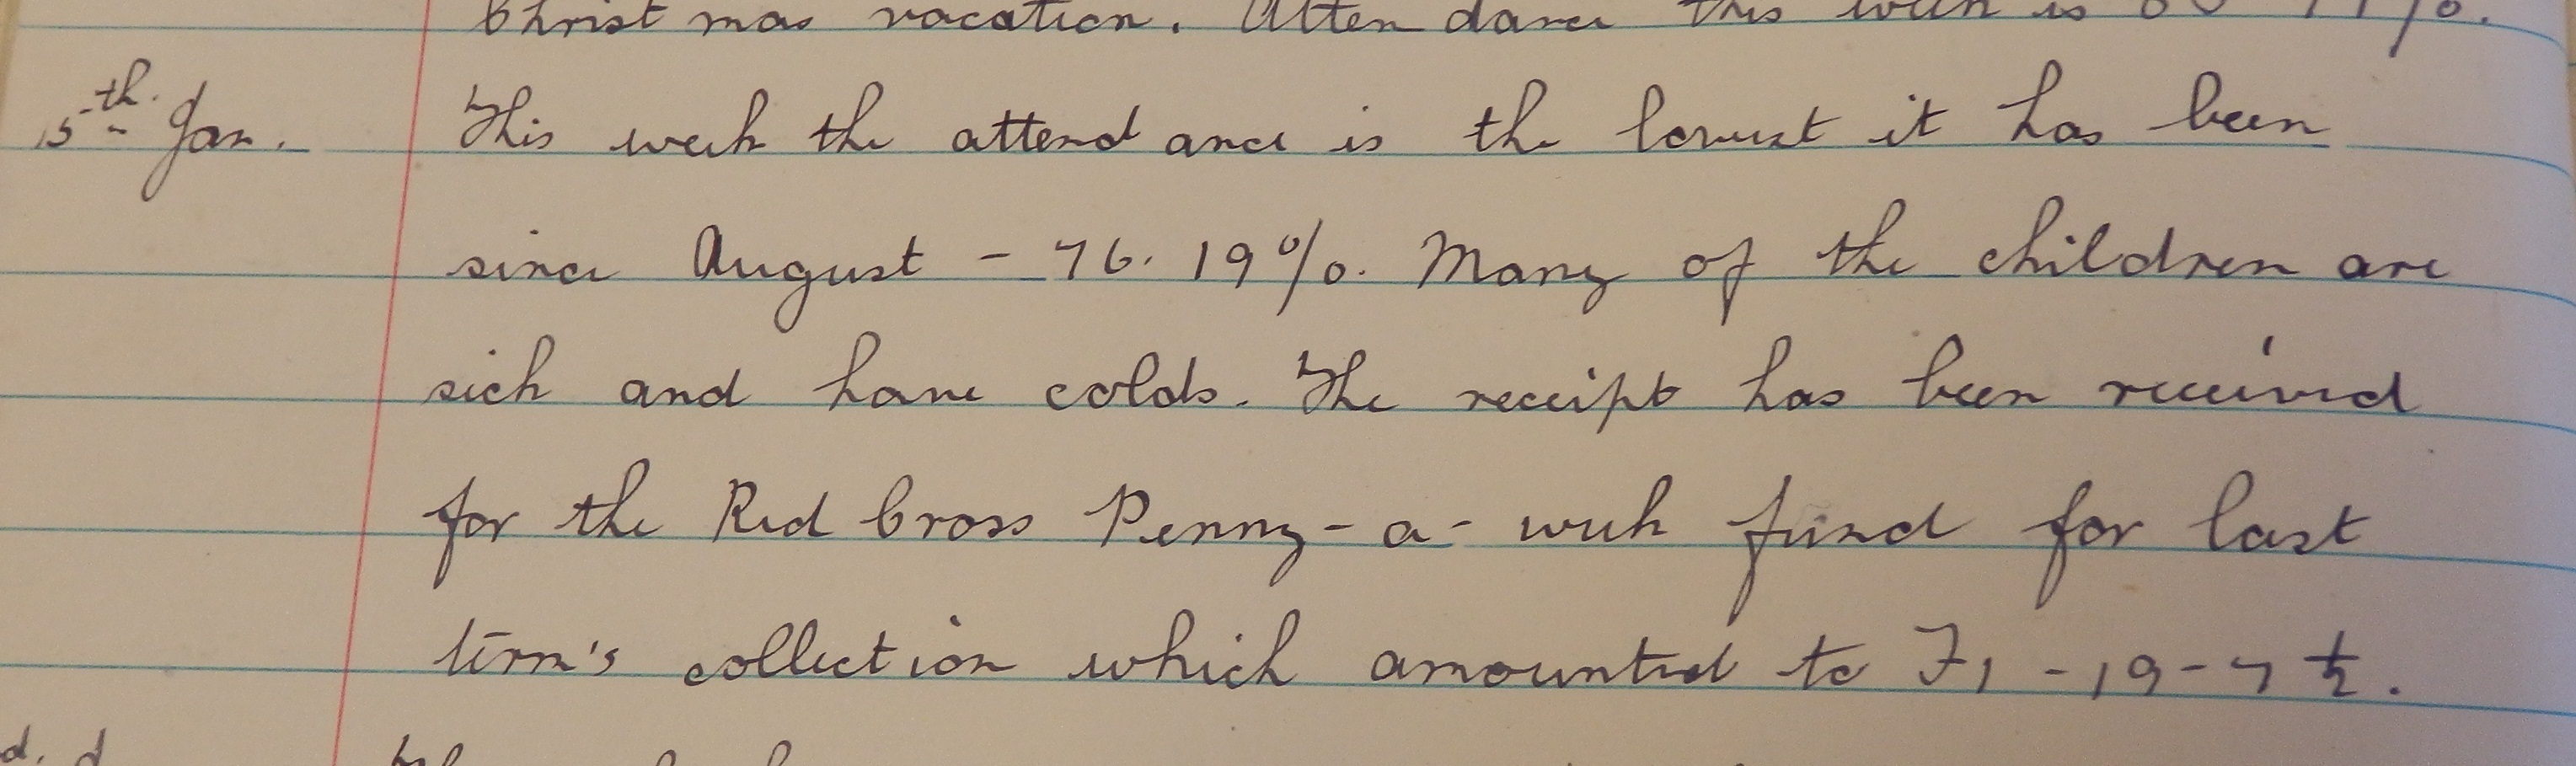 Christmas vacation. Attendance this week is
15th. Jan. This week the attendance is the lowest it has been
since August - 76.19%. Many of the children are
sick and have colds. The receipt has been received
for the Red Cross Penny-a-week fund for last
term's collection which amounted to £1-19-7½.